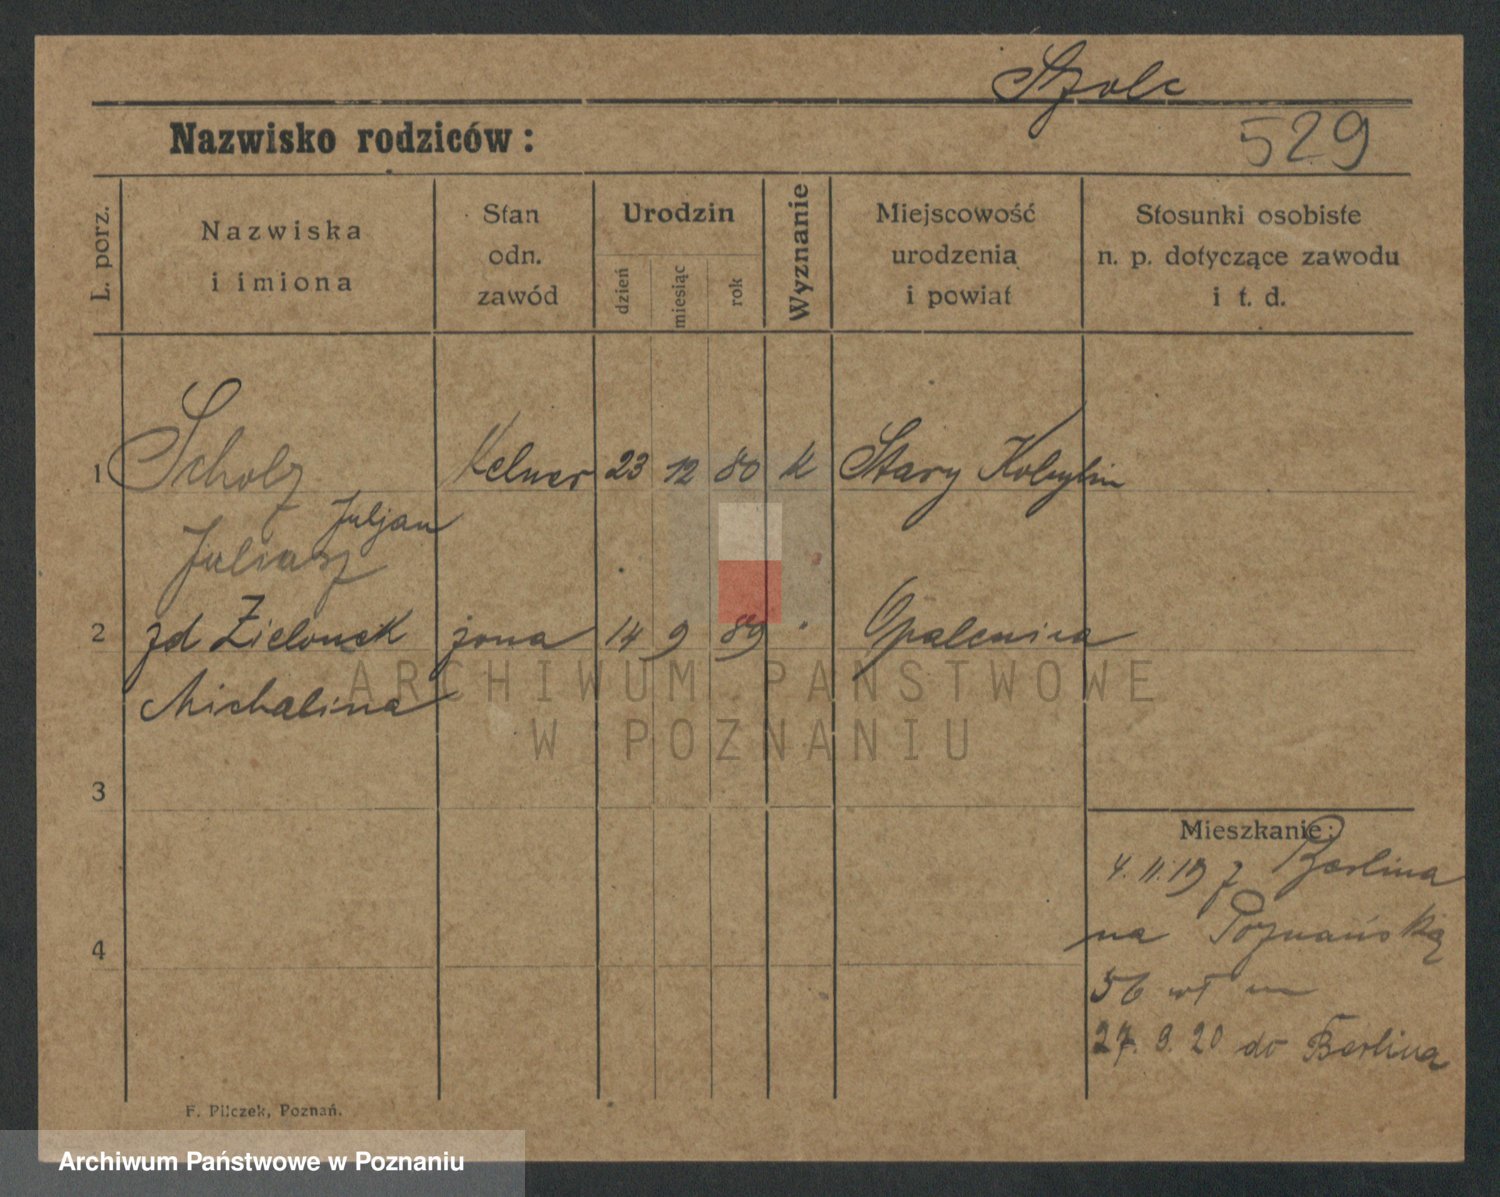 Szolc
Nazwisko rodziców:
529
L. porz.
Nazwiska
i imiona
Stan
odn.
zawód
Urodzin
dzień
miesiąc
rok
Wyznanie
Miejscowość
urodzenia
i powiat
Stosunki osobiste
n. p. dotyczące zawodu
i t. d.
1 Scholz Kelner 23 12 80 k Stary Kobylin
Juljan
Juliasz
2 zd Zielonek żona 14 9 89 " Opalenica
Michalina
ARCHIWUM PAŃSTWOWE
W POZNANIU
3
Mieszkanie:
4. 11. 19 z Berlina
na Poznańską
4
56 wł m
27. 9. 20 do Berlina
F. Pilczek, Poznań.
Archiwum Państwowe w Poznaniu